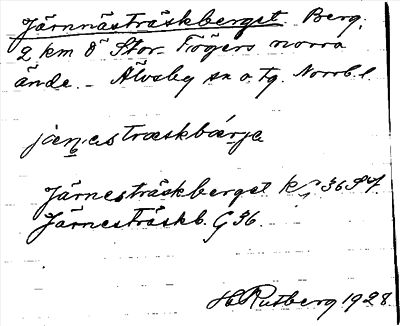 Järnnästräskberget Berg,
2 km ö Stor-Trögers norra
ände. - Älvsby sn o. tg. Norrb. l
jæṇestræskbärjæ
Järnesträskberget KG 36
Järnesträskb. G 36.
H Rutberg 1928